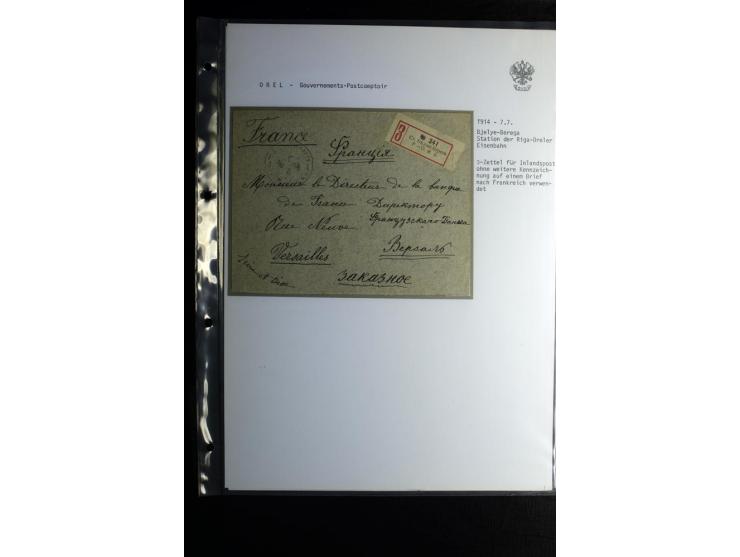 O R E L - Gouvernements-Postcomptoir
1914 - 7.7.
Bjelye-Berega
Station der Riga-Oreler
Eisenbahn
3-Zettel für Inlandspost
ohne weitere Kennzeich-
nung auf einem Brief
nach Frankreich verwen-
det
France
Франція
З
№ 341
Monsieur le Directeur de la banque
de France Директору
Rue Neuve Французскаго Банка
Versailles Версаль
заказное